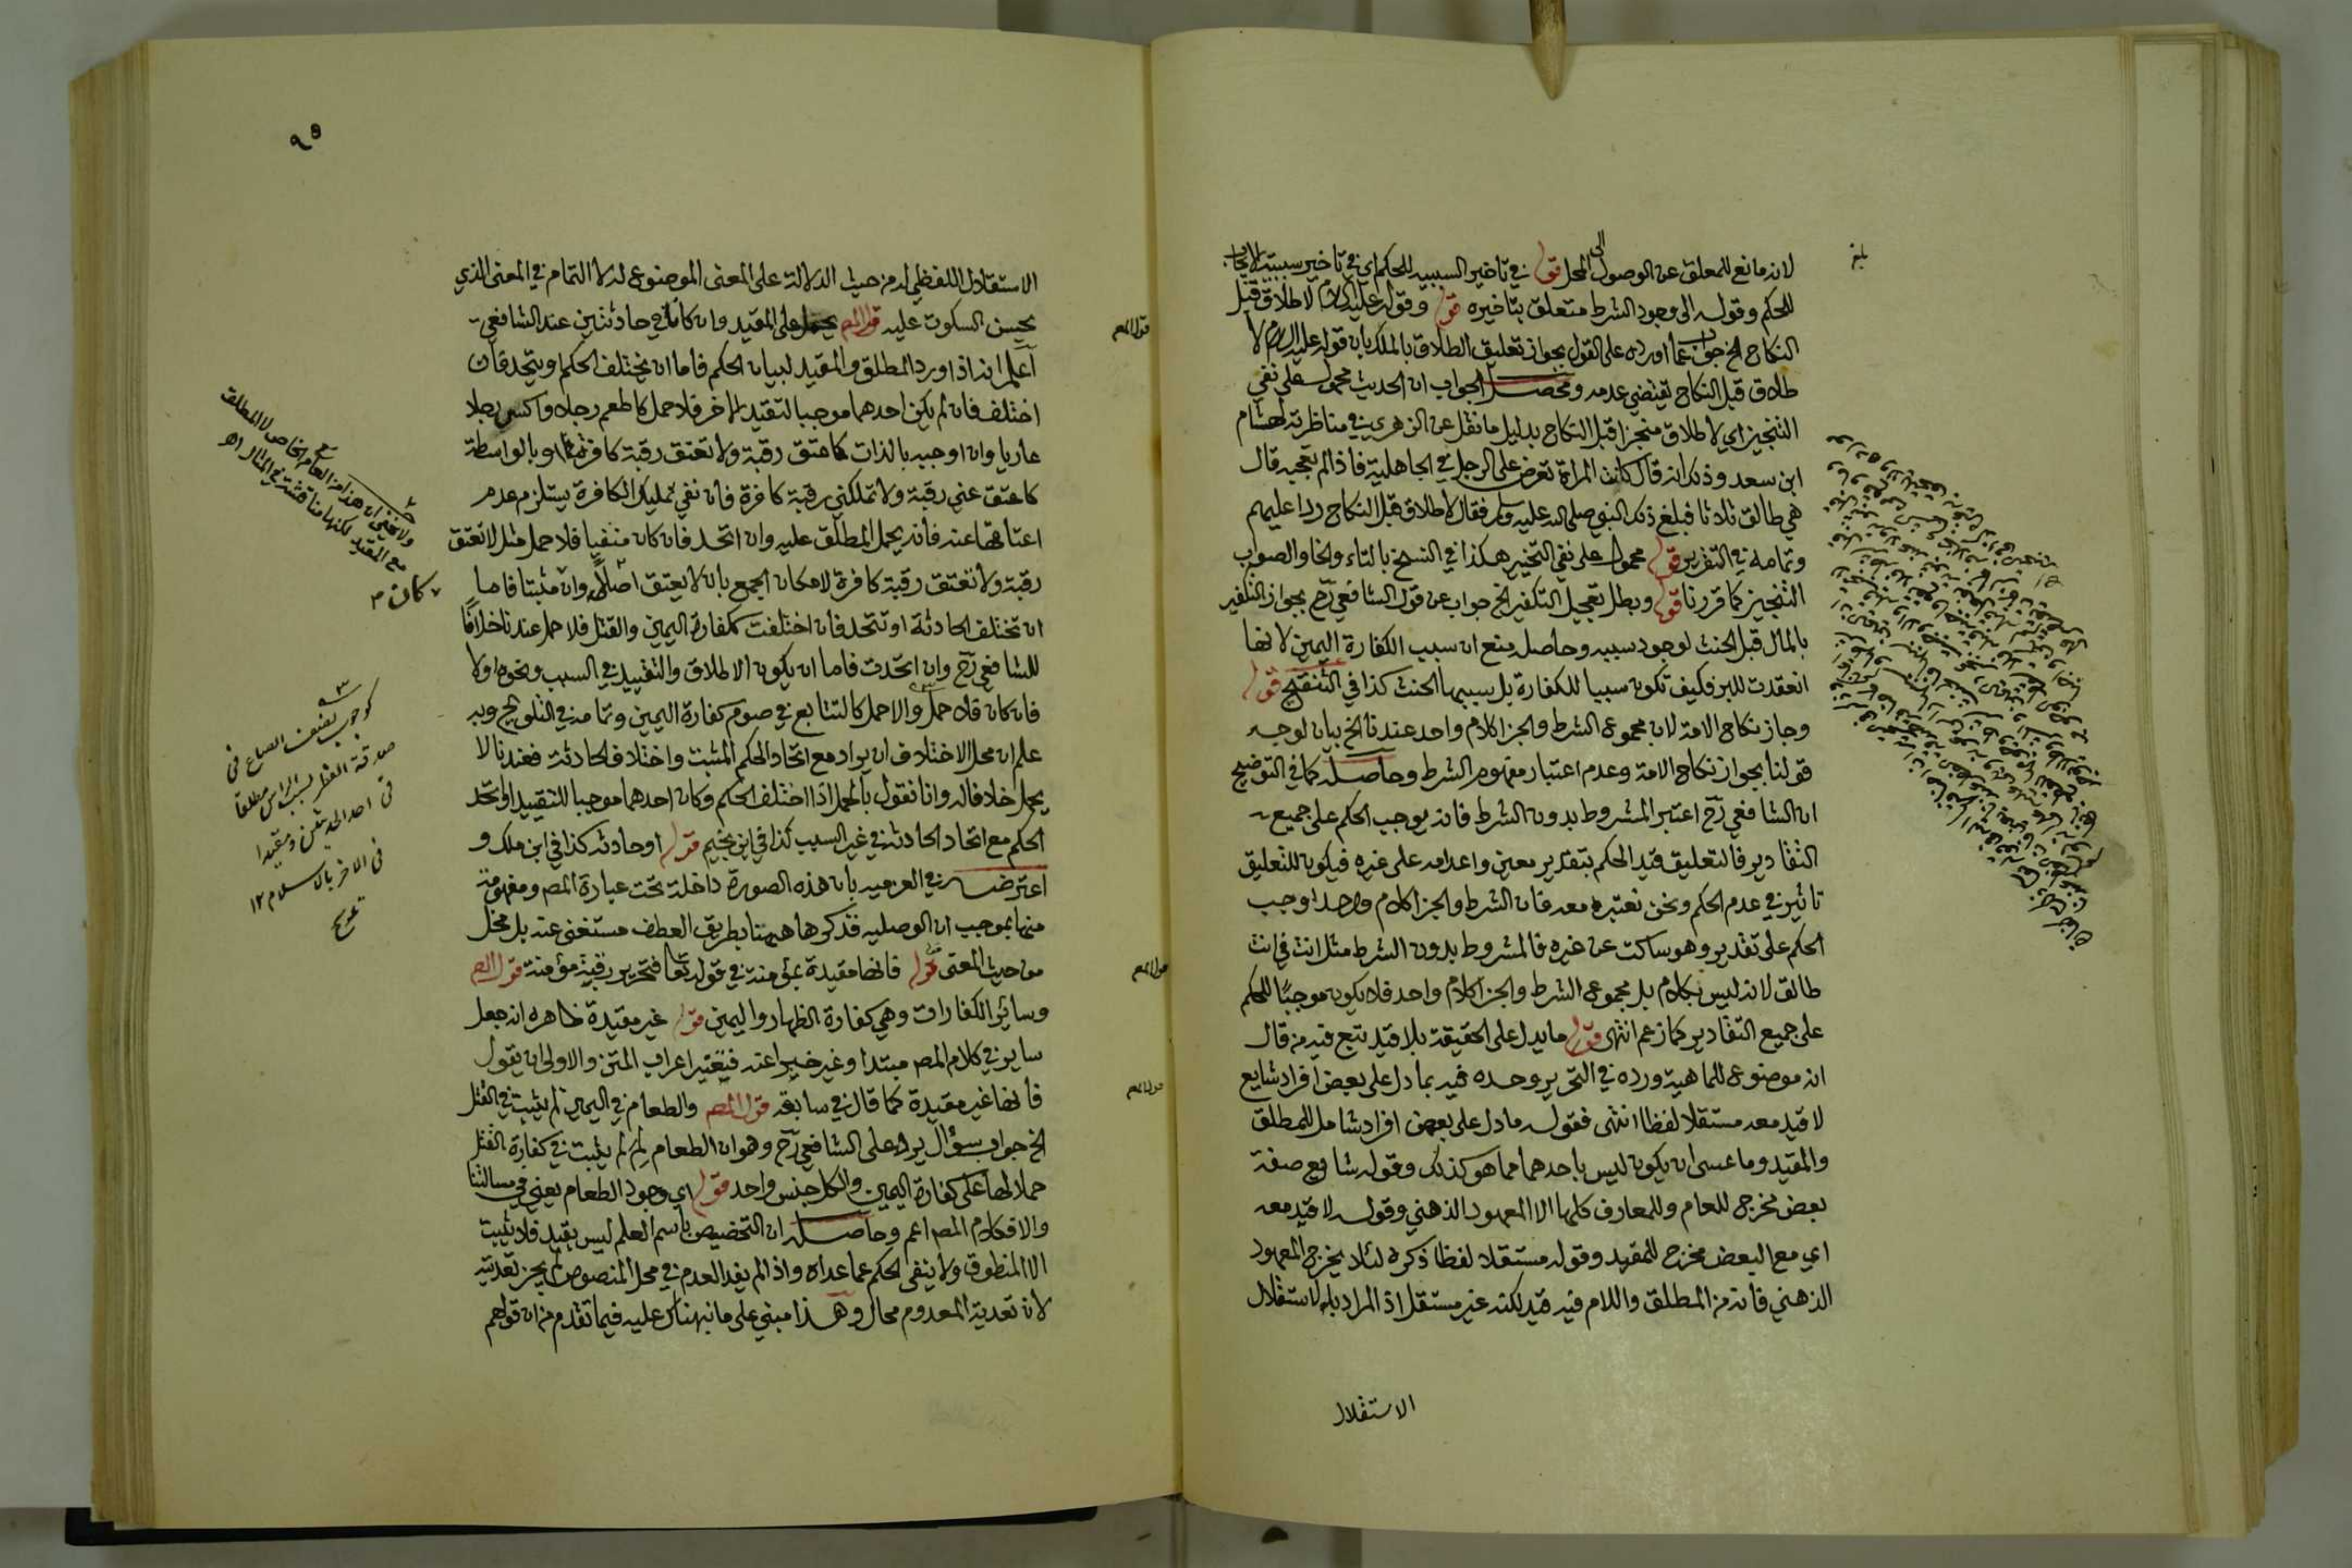 لانه مانع للمعلق عن الوصول الى المحل قوله في تاخير السببية للحكم اي في تاخير سببية الايجاب
للحكم وقوله الى وجود الشرط متعلق بتاخيره قوله وقوله عليه السلام لا طلاق قبل
النكاح الخ جواب عما اورده على القول بجواز تعليق الطلاق بالملك بان قوله عليه السلام لا
طلاق قبل النكاح يقتضي عدمه ومحصل الجواب ان الحديث محمول على نفي
التنجيز اي لا طلاق منجزا قبل النكاح بدليل ما نقل عن الزهري في مناظرته لهشام
ابن سعد وذلك انه قال كانت المراة تعرض على الرجل في الجاهلية فاذا لم تعجبه قال
هي طالق ثلاثا فبلغ ذلك النبي صلى الله عليه وسلم فقال لا طلاق قبل النكاح ردا عليهم
وتمامه في التقرير قوله محمول على نفي التخيير هكذا في النسخ بالتاء والخا والصواب
التنجيز كما قررنا قوله وبطل تعجيل التكفير الخ جواب عن قول الشافعي رح بجواز التكفير
بالمال قبل الحنث لوجود سببه وحاصله منع ان سبب الكفارة اليمين لانها
انعقدت للبر فكيف تكون سببا للكفارة بل سببها الحنث كذا في التنقيح قوله
وجاز نكاح الامة لان مجموع الشرط والجزا كلام واحد عندنا الخ بيان لوجه
قولنا بجواز نكاح الامة وعدم اعتبار مفهوم الشرط وحاصله كما في التوضيح
ان الشافعي رح اعتبر المشروط بدون الشرط فانه يوجب الحكم على جميع
التقادير فالتعليق قيد الحكم بتقدير معين واعدامه على غيره فيكون للتعليق
تاثير في عدم الحكم ونحن نعتبره معه فان الشرط والجزا كلام واحد اوجب
الحكم على تقدير وهو ساكت عن غيره فالمشروط بدون الشرط مثل انت في انت
طالق لانه ليس بكلام بل مجموع الشرط والجزا كلام واحد فلا يكون موجبا للحكم
على جميع التقادير كما زعم انتهى قوله ما يدل على الحقيقة بلا قيد تبع فيه من قال
انه موضوع للماهية ورده في التحرير وحده فيه بما دل على بعض افراد شايع
لا قيد معه مستقلا لفظا انتهى فقوله ما دل على بعض افراد شامل للمطلق
والمقيد وما عسى ان يكون ليس باحدهما مما هو كذلك وقوله شايع صفة
بعض مخرج للعام وللمعارف كلها الا المعهود الذهني وقوله لا قيد معه
اي مع البعض مخرج للمقيد وقوله مستقلا لفظا ذكره لئلا يخرج المعهود
الذهني فانه من المطلق واللام فيه قيد لكنه غير مستقل اذ المراد بالاستقلال
الاستقلال
٩٥
الاستقلال اللفظي له من حيث الدلالة على المعنى الموضوع له لا التمام في المعنى الذي
يحسن السكوت عليه قول المص يحمل على المقيد وان كانا في حادثتين عند الشافعي
اعلم انه اذا ورد المطلق والمقيد لبيان الحكم فاما ان يختلف الحكم او يتحد فان
اختلف فان لم يكن احدهما موجبا لتقييد الاخر فلا حمل كاطعم رجلا واكس رجلا
عاريا وان اوجبه بالذات كاعتق رقبة ولا تعتق رقبة كافرة او بالواسطة
كاعتق عني رقبة ولا تملكني رقبة كافرة فان نفي تمليك الكافرة يستلزم عدم
اعتاقها عنه فانه يحمل المطلق عليه وان اتحد فان كان منفيا فلا حمل مثل لا تعتق
رقبة ولا تعتق رقبة كافرة لامكان الجمع بان لا يعتق اصلا وان مثبتا فاما
ان تختلف الحادثة او تتحد فان اختلفت ككفارة اليمين والقتل فلا حمل عندنا خلافا
للشافعي رح وان اتحدت فاما ان يكون الاطلاق والتقييد في السبب ونحوه اولا
فان كان فلا حمل والا حمل كالتتابع في صوم كفارة اليمين وتمامه في التلويح وبه
علم ان محل الاختلاف ان يراد مع اتحاد الحكم المثبت واختلاف الحادثة فعندنا لا
يحمل خلافا له وانا نقول بالحمل اذا اختلف الحكم وكان احدهما موجبا للتقييد او اتحد
الحكم مع اتحاد الحادثة في غير السبب كذا في ابن نجيم قوله او حادثه كذا في ابن ملك و
اعترضه في العزمية بان هذه الصورة داخلة تحت عبارة المص ومفهومة
منها بموجب ان الوصلية فذكرها ههنا بطريق العطف مستغنى عنه بل مخل
من حيث المعنى قوله فانها مقيدة بمؤمنة في قوله تعا فتحرير رقبة مؤمنة قول المص
وسائر الكفارات وهي كفارة الظهار واليمين قوله غير مقيدة ظاهره انه جعل
ساير في كلام المص مبتدا وغير خبرا عنه فيتغير اعراب المتن والاولى ان يقول
فانها غير مقيدة كما قال في سابقه قول المص والطعام في اليمين لم يثبت في القتل
الخ جواب سؤال يرد على الشافعي رح وهو ان الطعام لم لم يثبت في كفارة القتل
حملا لها على كفارة اليمين والكل جنس واحد قوله اي وجود الطعام يعني في مسالتنا
والا فكلام المص اعم وحاصله ان التخصيص باسم العلم ليس بقيد فلا يثبت
الا المنطوق ولا ينفي الحكم عما عداه واذا لم يفد العدم في محل المنصوص لم يجز تعديته
لان تعدية المعدوم محال وهذا مبني على ما نبهناك عليه فيما تقدم من ان قولهم
قول المص
قول المص
قول المص
ولا يخفى ان هذا من العام مع الخاص لا المطلق
مع المقيد لكنها مناقشة في المثال اه
كان
كوجوب نصف الصاع في
صدقة الفطر بسبب الراس مطلقا
في احد الحديثين ومقيدا
في الاخر بالاسلام ١٢
تلويح